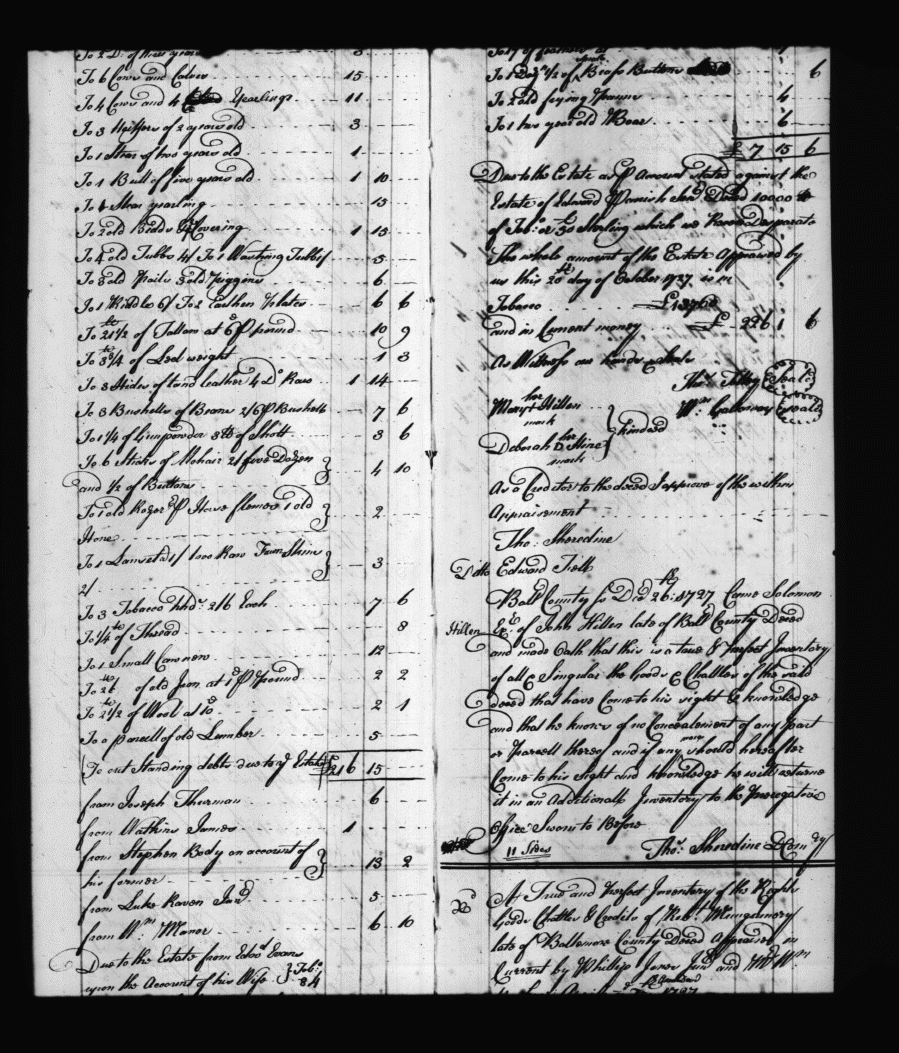 To 6 Cows and Calves 15
To 4 Cows and 4 Yearlings 11
To 3 Heiffers of 2 years old 3
To 1 Stear of two years old 1
To 1 Bull of five years old 1 10
To 1 Stear yearling 15
To 2 old Bedds & Covering 1 15
To 4 old Tubbs 4/ To 1 Washing Tubb 1/ 5
To 3 old Pails 3 old Piggins 6
To 1 Riddle 6/ To 2 Earthen Plates 6 6
To 21 1/2 lb of Tallow at 6d P pound 10 9
To 3 3/4 lb of Led weight 1 3
To 3 Hides of tand leather 4 Do Raw 1 14
To 3 Bushells of Beans 2/6 P Bushell 7 6
To 1 1/4 of Gunpowder 3 lb of Shott 3 6
To 6 Sticks of Mohair 2/ five Dozen
and 1/2 of Buttons 4 10
To 1 old Razer & P Horse flemes 1 old
Hone 2
To 1 Lanset 1/ 1 Raw Skinn
2/ 3
To 3 Tobacco hhds 2/6 Each 7 6
To 1/4 lb of Thread 8
To 1 Small Cannow 12
To 26 lb of old Iron at 1d P Pound 2 2
To 2 1/2 lb of Wool at 10d 2 1
To a parcell of old Lumber 5
To out Standing debts due to ye Estate £216 15
from Joseph Thurman 6
from Watkins James 1
from Stephen Body on account of
his former 13 2
from Luke Raven Junr 5
from Wm Manor 6 10
Due to the Estate from Edwd Evans
upon the Account of his Wife Tobo 84
To 1 Dozn 1/2 of Brass Buttons 6
To 2 old frying Panns 4
To 1 two year old Boar 6
£ 7 15 6
Due to the Estate as P Account stated against the
Estate of Edward Parrish Senr Deced 10000 lb
of Tobo & £50 Sterling which we Reccon Desparate
The whole amount of the Estate Appraised by
us this 20th day of October 1737 is in
Tobacco
and in Current money £ 226 1 6
As Witness our hands & Seals
Thos Talley (Seal)
Wm Galloway (Seal)
her
Mary + Hillen
mark
Deborah her Hine kindred
mark
As a Creditor to the deced I approve of the within
Appraisment
Tho: Sheredine
Ditto Edward Fell
Balt County ss Dr 26th 1737 Came Solomon
Hillen Exr of John Hillen late of Balt County Deced
and made Oath that this is a true & Perfect Inventory
of all & Singular the Goods & Chattles of the said
deced that have Come to his sight & knowledge
and that he knows of no Concealement of any Part
or Parcell thereof and if any more should hereafter
Come to his sight and knowledge he will returne
it in an Additionall Inventory to the Prerogative
Office Sworn to Before
11 Sides Thos Sheredine D Com ry
A True and Perfect Inventory of the Rights
Goods Chattles & Credits of Robt Mungumery
late of Baltemore County Deced Appraised in
Current by Phillip Jones Junr and Mr Wm